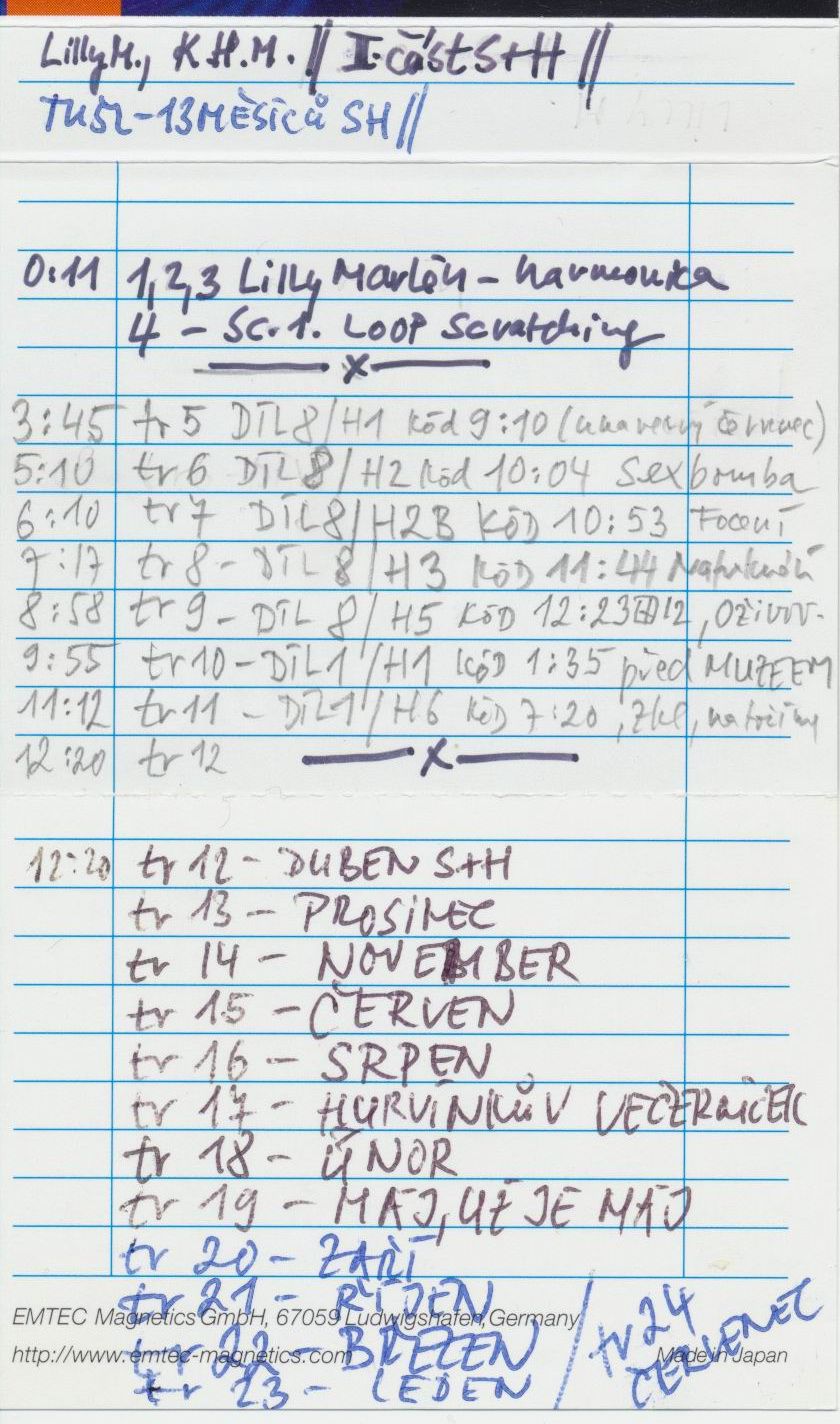 Lilly M., K.H.M. // II. část S+H //
TUSL-13MĚSÍCŮ SH //
0:11 1,2,3 Lilly Marlén - harmonika
4 - Sc. 1. LOOP Scratching
x
3:45 tr 5 DÍL 8/H1 kód 9:10 (unavený červenec)
5:10 tr 6 DÍL 8/H2 kód 10:04 Sexbomba
6:10 tr 7 DÍL 8/H2B KÓD 10:53 Focení
7:17 tr 8 - DÍL 8/H3 KÓD 11:44
8:58 tr 9 - DÍL 8/H5 KÓD 12:23 12, OŽIVOV-
9:55 tr 10 - DÍL 1/H1 KÓD 1:35 před MUZEEM
11:12 tr 11 - DÍL 1/H6 KÓD 7:20, zkl, natočíme
12:20 tr 12 x
12:20 tr 12 - DUBEN S+H
tr 13 - PROSINEC
tr 14 - NOVEMBER
tr 15 - ČERVEN
tr 16 - SRPEN
tr 17 - HURVÍNKŮV VEČERNÍČEK
tr 18 - ÚNOR
tr 19 - MÁJ, UŽ JE MÁJ
tr 20 - ZÁŘÍ
tr 21 - ŘÍJEN
tr 22 - BŘEZEN
tr 23 - LEDEN
/ tr 24
ČERVENEC
EMTEC Magnetics GmbH, 67059 Ludwigshafen, Germany
http://www.emtec-magnetics.com Made in Japan